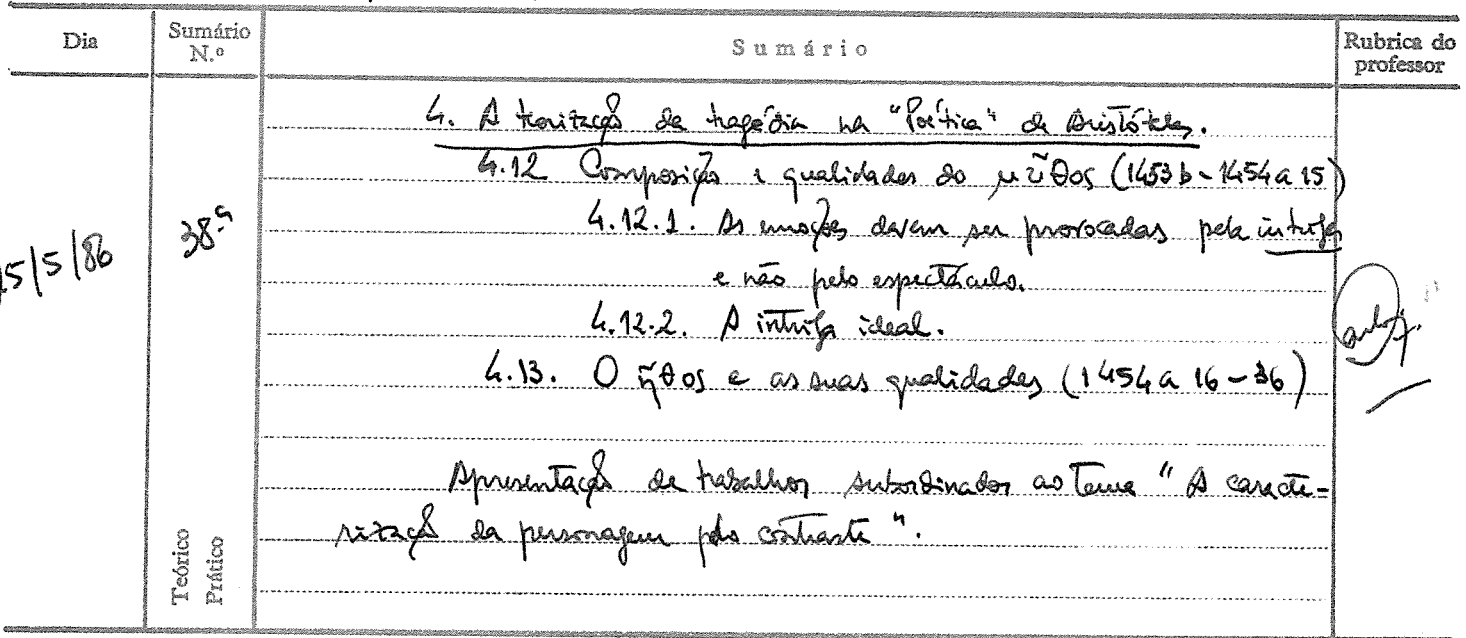 Dia
Sumário N.º
Sumário
Rubrica do professor
15/5/86
38.ª
4. A teorização da tragédia na "Poética" de Aristóteles.
4.12 Composição e qualidades do μῦθος (1453b-1454a 15)
4.12.1. As emoções devem ser provocadas pela intriga
e não pelo espectáculo.
4.12.2. A intriga ideal.
4.13. O ἦθος e as suas qualidades (1454a 16-36)
Apresentação de trabalhos subordinados ao Tema "A caracte-
rização da personagem pelo contraste".
Teórico
Prático